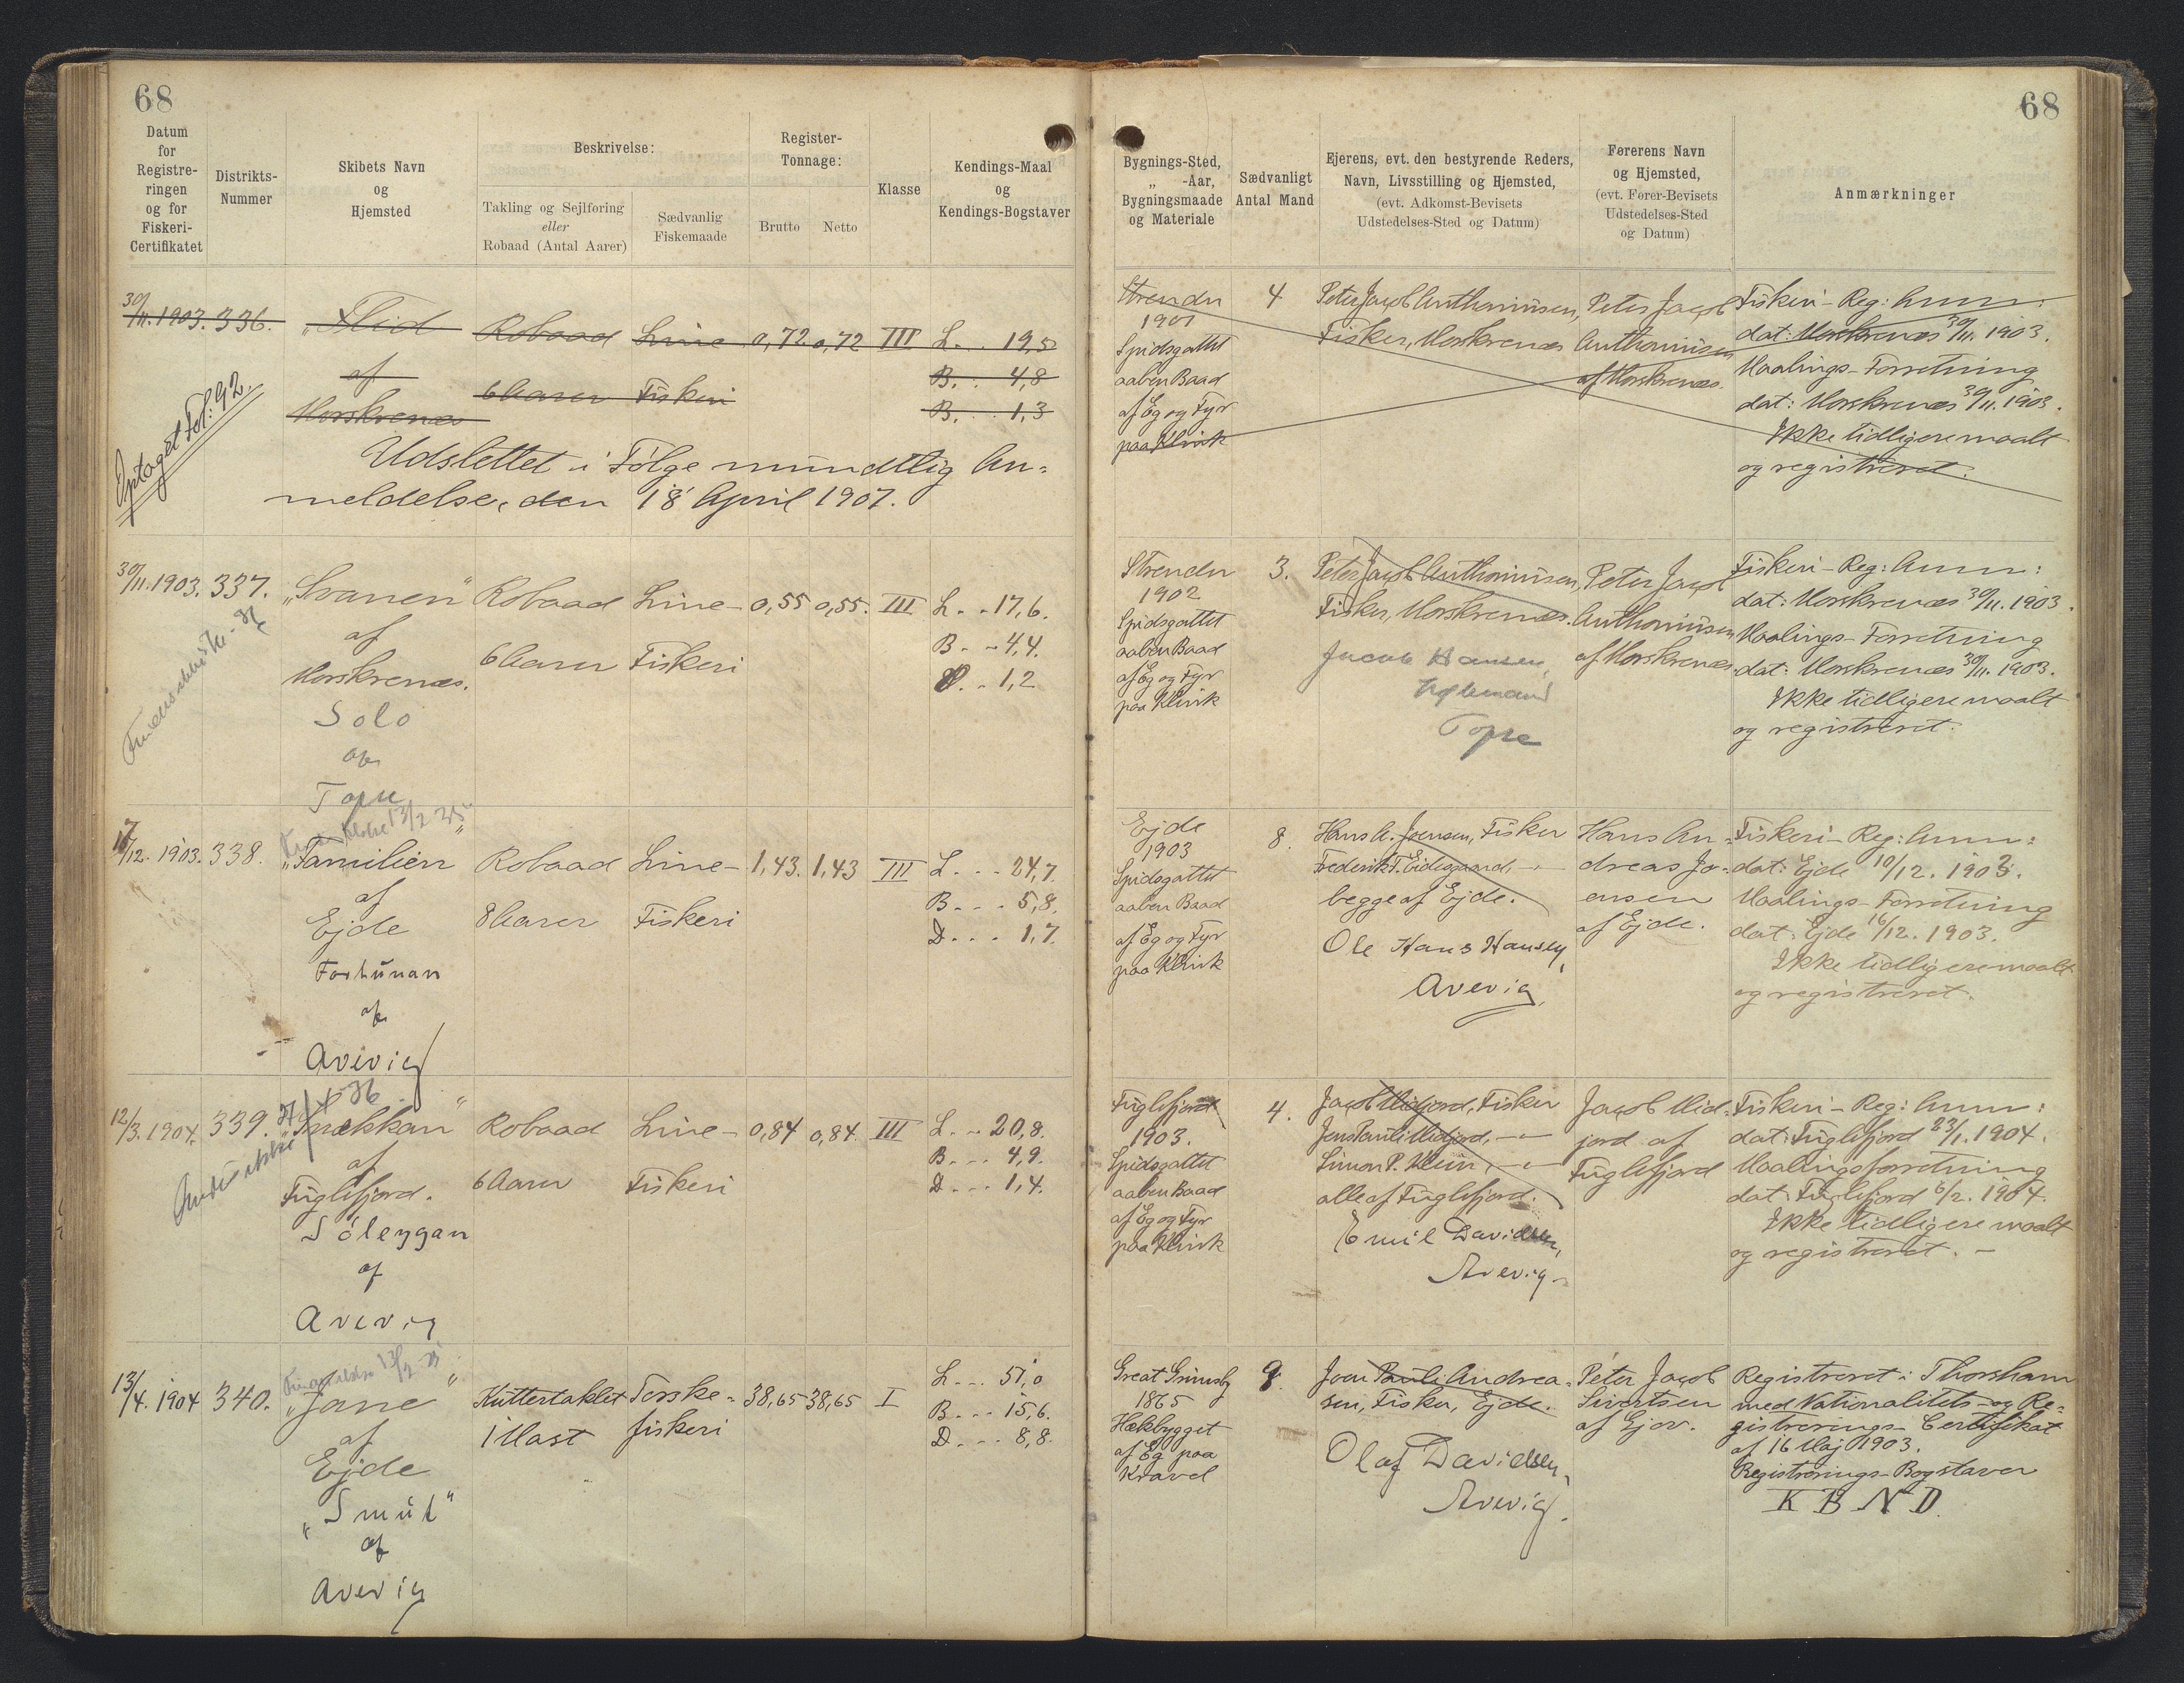 68
68
Datum
for
Registre-
ringen
og for
Fiskeri-
Certifikatet
Distrikts-
Nummer
Skibets Navn
og
Hjemsted
Beskrivelse:
Takling og Sejlføring
eller
Robaad (Antal Aarer)
Sædvanlig
Fiskemaade
Register-
Tonnage:
Brutto
Netto
Klasse
Kendings-Maal
og
Kendings-Bogstaver
Bygnings-Sted,
„ -Aar,
Bygningsmaade
og Materiale
Sædvanligt
Antal Mand
Ejerens, evt. den bestyrende Reders,
Navn, Livsstilling og Hjemsted,
(evt. Adkomst-Bevisets
Udstedelses-Sted og Datum)
Førerens Navn
og Hjemsted,
(evt. Fører-Bevisets
Udstedelses-Sted
og Datum)
Anmærkninger
30/11. 1903. 336.
„Flid
af
Morskrenæs
Robaad
6 Aarer
Line
Fiskeri
0,72 0,72 III
L. . . 19,5
B. . 4,8
B. . . 1,3
Optaget Fol: 92.
Udslettet i Følge mundtlig An-
meldelse, den 18' April 1907.
Strendr
1901
Spidsgattet
aaben Baad
af Eg og Fyr
paa Klink
4
Peter Jacob Anthoniusen,
Fisker, Morskrenæs
Peter Jacob
Anthoniusen
af Morskrenæs.
Fiskeri-Reg: Anm:
dat: Morskrenæs 30/11. 1903.
Maalings-Forretning
dat: Morskrenæs 30/11. 1903.
Ikke tidligere maalt
og registreret.
30/11. 1903. 337.
„Svanen"
af
Morskrenæs.
Solo
af
Robaad
6 Aarer
Line-
Fiskeri
0,55 0,55. III
L. . 17,6.
B. - 4,4.
D. . 1,2
Strendr
1902
Spidsgattet
aaben Baad
af Eg og Fyr
paa Klink
3.
Peter Jacob Anthoniusen,
Fisker, Morskrenæs.
Jacob Hansen,
Peter Jacob
Anthoniusen
af Morskrenæs.
Fiskeri-Reg: Anm:
dat: Morskrenæs 30/11. 1903.
Maalings-Forretning
dat: Morskrenæs 30/11. 1903.
Ikke tidligere maalt
og registreret.
/12. 1903. 338.
„Familien"
af
Ejde
Fortunan
af
Avevig
Robaad
8 Aarer
Line-
Fiskeri
1,43. 1,43 III
L. . . 24,7
B. . . 5,8.
D. . . 1,7.
Ejde
1903
Spidsgattet
aaben Baad
af Eg og Fyr
paa Klink
8.
Hans A. Joensen, Fisker
Frederik T. Eidesgaard, -"-
begge af Ejde.
Ole Hans Hansen,
Avevig,
Hans An-
dreas Jo-
ensen
af Ejde.
Fiskeri-Reg: Anm:
dat: Ejde 10/12. 1903.
Maalings-Forretning
dat. Ejde 16/12. 1903.
Ikke tidligere maalt
og registreret.
12/3. 1904. 339.
„Snekkan"
af
Fuglefjord.
Sóleygan
af
Avevig
Robaad
6 Aarer
Line-
Fiskeri
0,84 0,84. III
L. . . 20,8.
B. . . 4,9.
D. . . 1,4.
Fuglefjord
1903.
Spidsgattet
aaben Baad
af Eg og Fyr
paa Klink
4.
Jacob Midjord, Fisker
Jens Pauli Midjord, -"-
Simon P. Klein, -"-
alle af Fuglefjord.
Emil Davidsen,
Avevig-
Jacob Mid-
jord af
Fuglefjord
Fiskeri-Reg: Anm:
dat: Fuglefjord 23/1. 1904.
Maalingsforretning
dat: Fuglefjord 6/2. 1904.
Ikke tidligere maalt
og registreret. -
13/4. 1904 340.
„Jane"
af
Ejde
„Smút"
af
Avevig
Kuttertaklet
1 Mast
Torske-
fiskeri
38,65 38,65 I
L. . . 51,0
B. . . 15,6.
D. . . 8,8.
Great Grimsby
1865
Hækbygget
af Eg paa
Kravel
9.
Joen Pauli Andrea-
sen, Fisker, Ejde.
Olaf Davidsen,
Avevig.
Peter Jacob
Sivertsen
af Gjov.
Registreret i Thorshavn
med Nationalitets- og Re-
gistrerings-Certifikat
af 16 Maj 1903.
Registrerings-Bogstaver
K B N D.